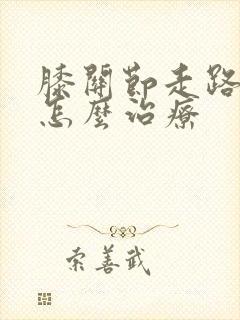 膝關節走路
怎麼治療
索善武